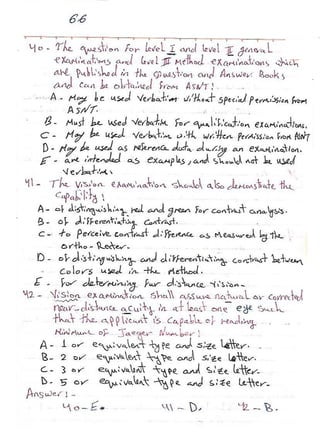 66
40- The question For level I and level II general
examinations and level III Method examinations which
are published in the Question and Answer Books
and can be obtained From ASNT!
A- May be used verbatim without special permission from
ASNT.
B- Must be used verbatim For qualification examinations.
C- May be used verbatim with written permission From ASNT
D- May be used as reference data during an examination.
E- are intended as examples, and should not be used
verbatim.
41- The vision examination should also demonstrate the
capability!
A- of distinguishing red and green For contrast analysis.
B- of differentiating contrast.
C- to perceive contrast difference as measured by the
ortho-Rater.
D- of distinguishing and differentiating contrast between
colors used in the method.
E- For determining Far distance vision-
42- Vision examination shall assure natural or corrected
near-distance acuity in at least one eye such
that the applicant is capable of reading
Minimum of Jaeger Number!
A- 1 or equivalent type and size letter.
B- 2 or equivalent type and size letter.
C- 3 or equivalent type and size letter.
D- 5 or equivalent type and size letter.
Answer!-
40-E. 41-D. 42-B.